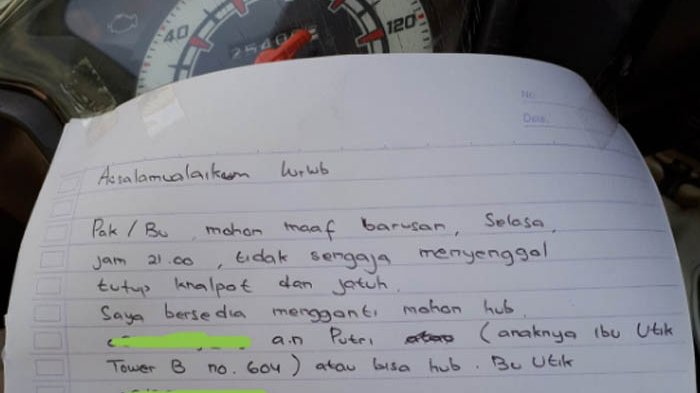 40
120
No
Date:
Assalamualaikum wrwb
Pak / Bu, mohon maaf barusan, Selasa,
jam 21.00, tidak sengaja menyenggol
tutup knalpot dan jatuh.
Saya bersedia mengganti mohon hub.
a.n Putri (anaknya Ibu Utik
Tower B no. 604) atau bisa hub. Bu Utik